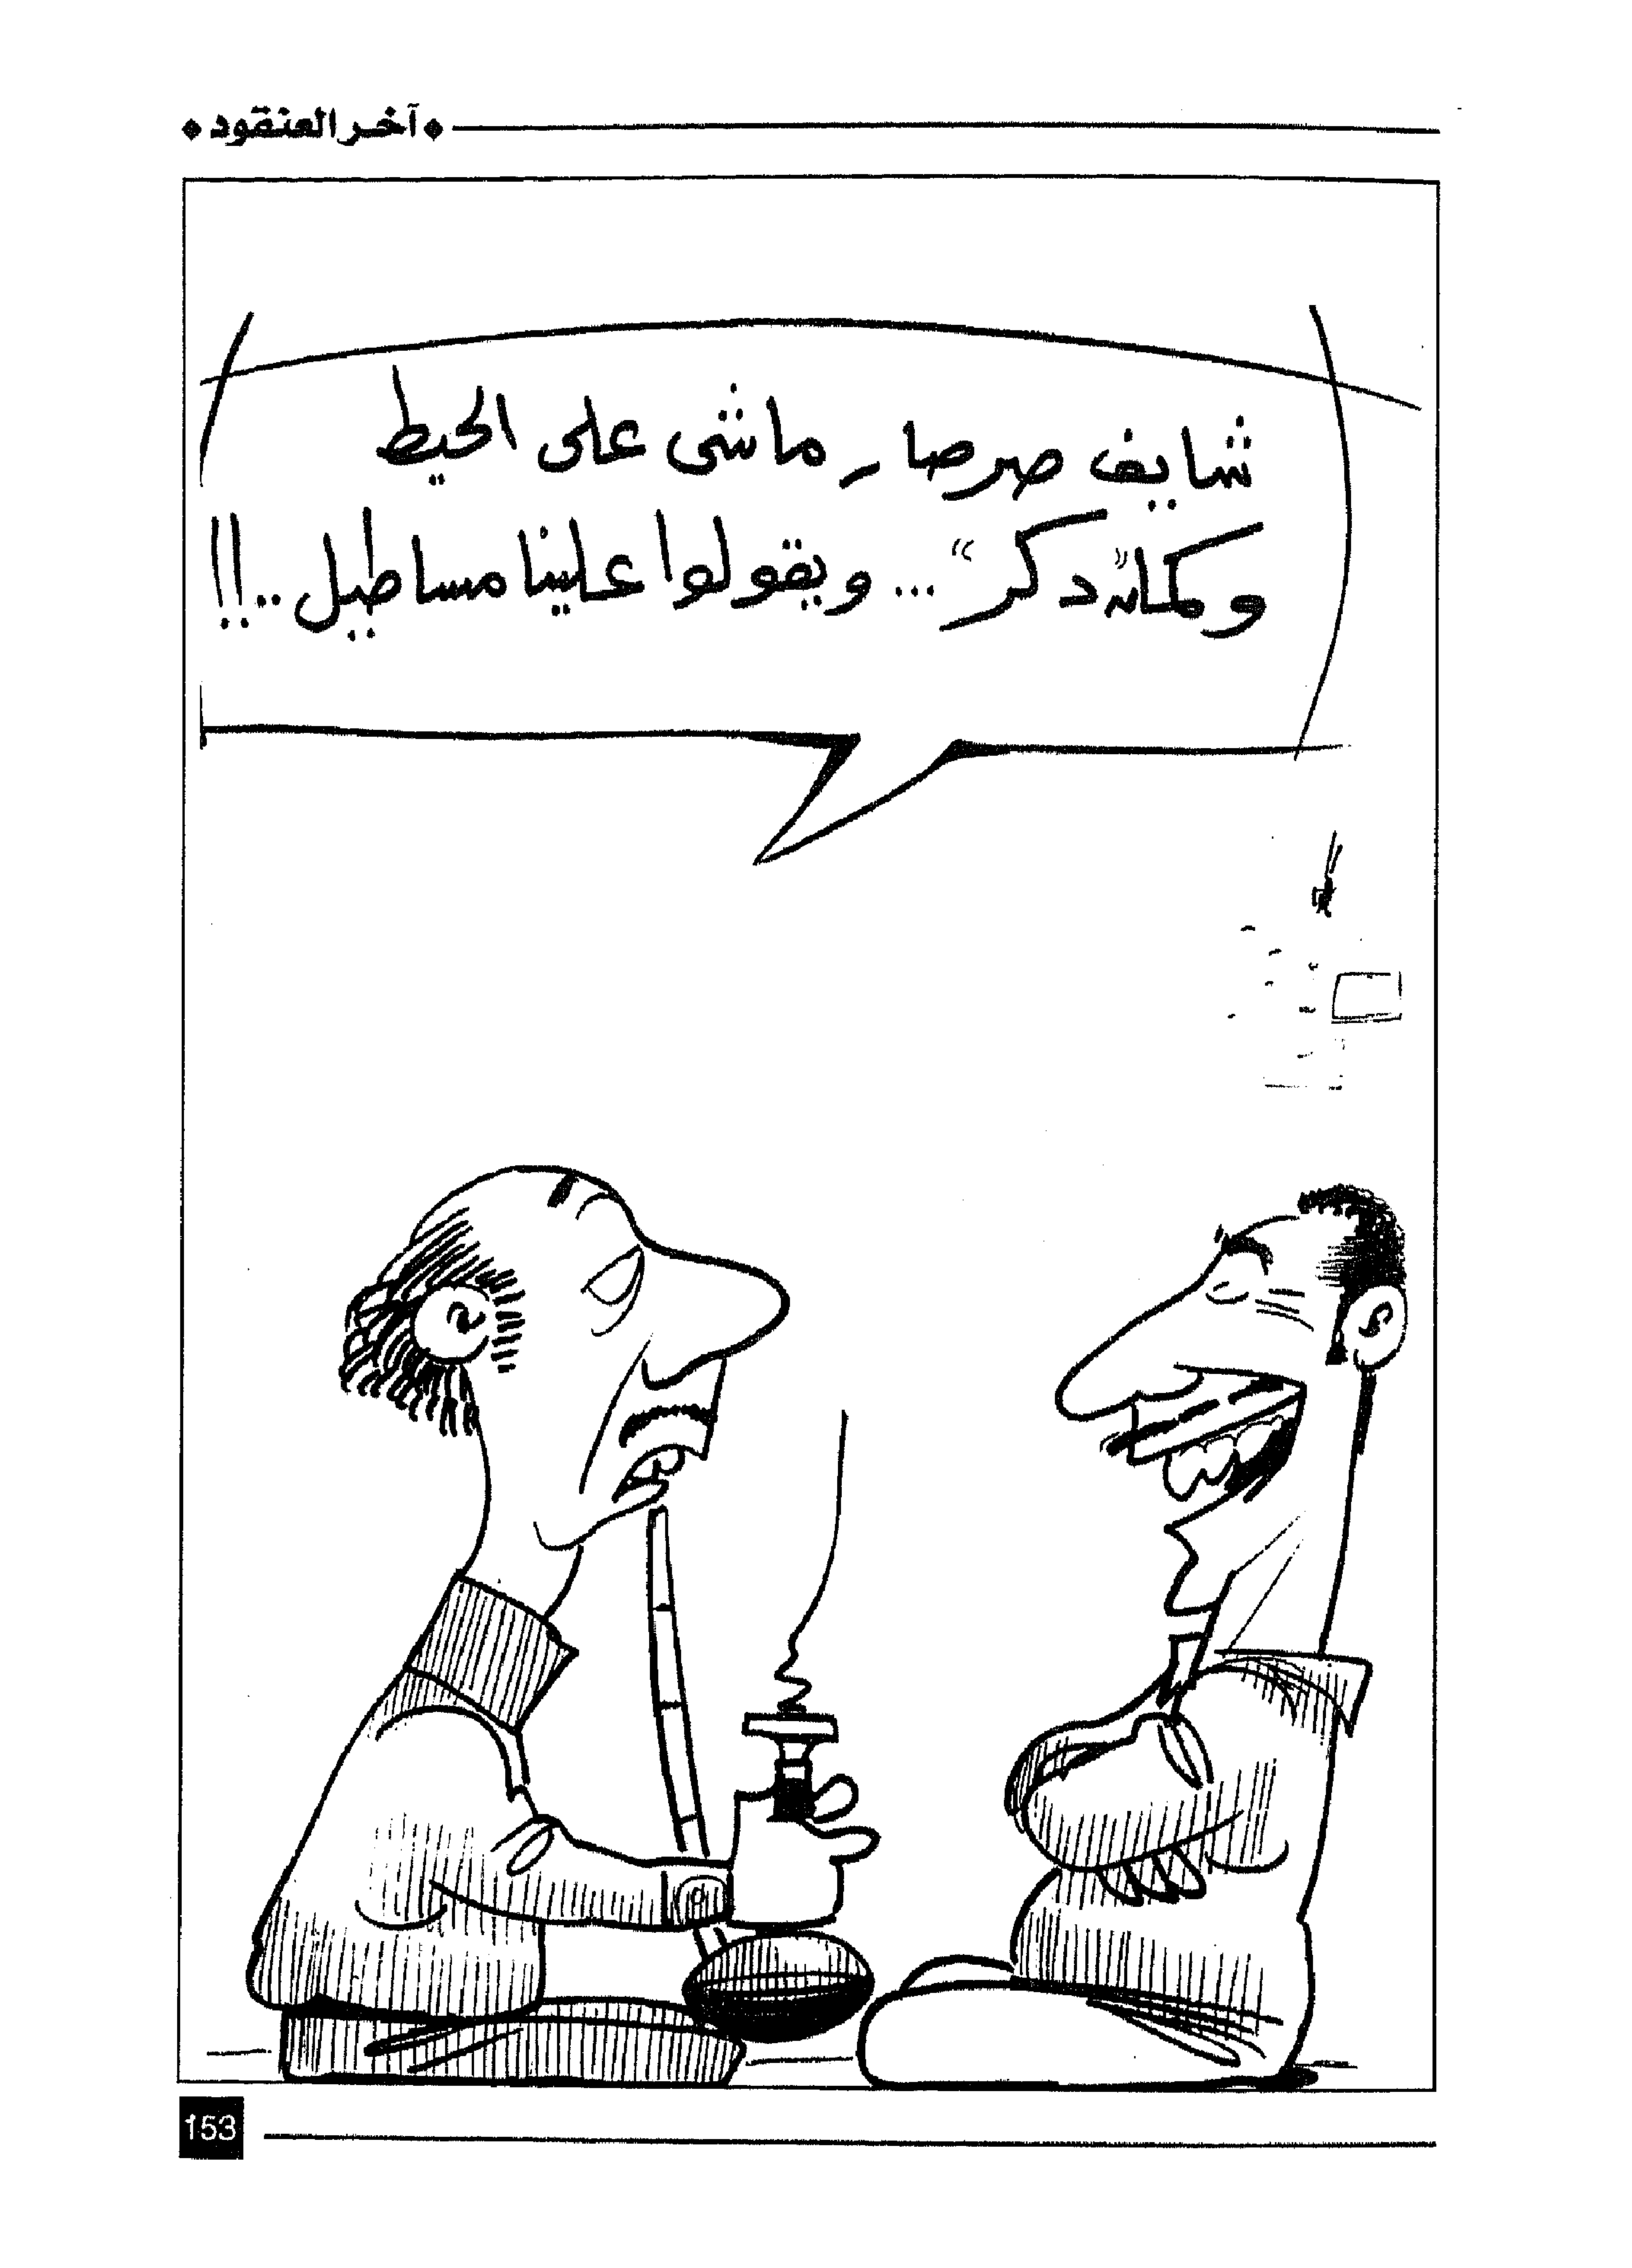 آخر العنقود
شايف صرصار ماشى على الحيط
وكمان "دكر" ... ويقولوا علينا مساطيل..!!
153